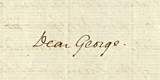 Dear George.